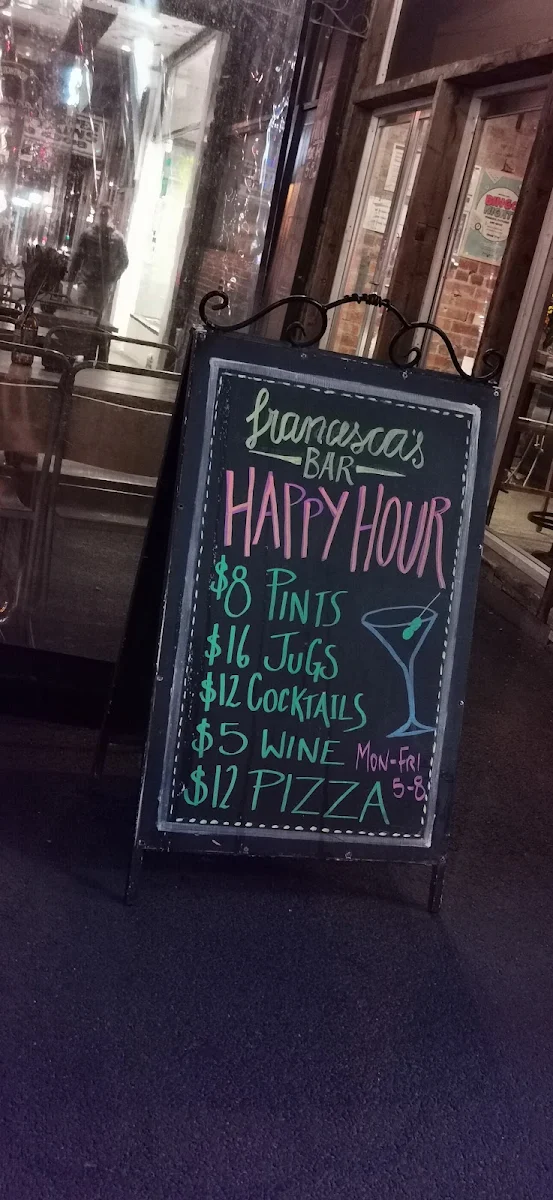 francesca's
BAR
HAPPY HOUR
$8 PINTS
$16 JUGS
$12 COCKTAILS
$5 WINE
MON-FRI
5-8
$12 PIZZA